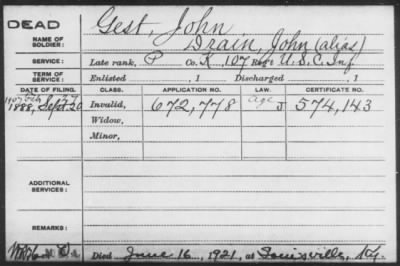 DEAD
Gest, John
NAME OF SOLDIER:
Drain, John (alias)
SERVICE: Late rank, P Co. K, 107 Reg't U.S.C. Inf
TERM OF SERVICE: Enlisted , 1 Discharged , 1
DATE OF FILING. CLASS. APPLICATION NO. LAW. CERTIFICATE NO.
1888, Sept 20 Invalid, 672,778 Age J 574,143
Widow,
Minor,
ADDITIONAL SERVICES:
REMARKS:
Died June 16, 1921, at Louisville, Ky.